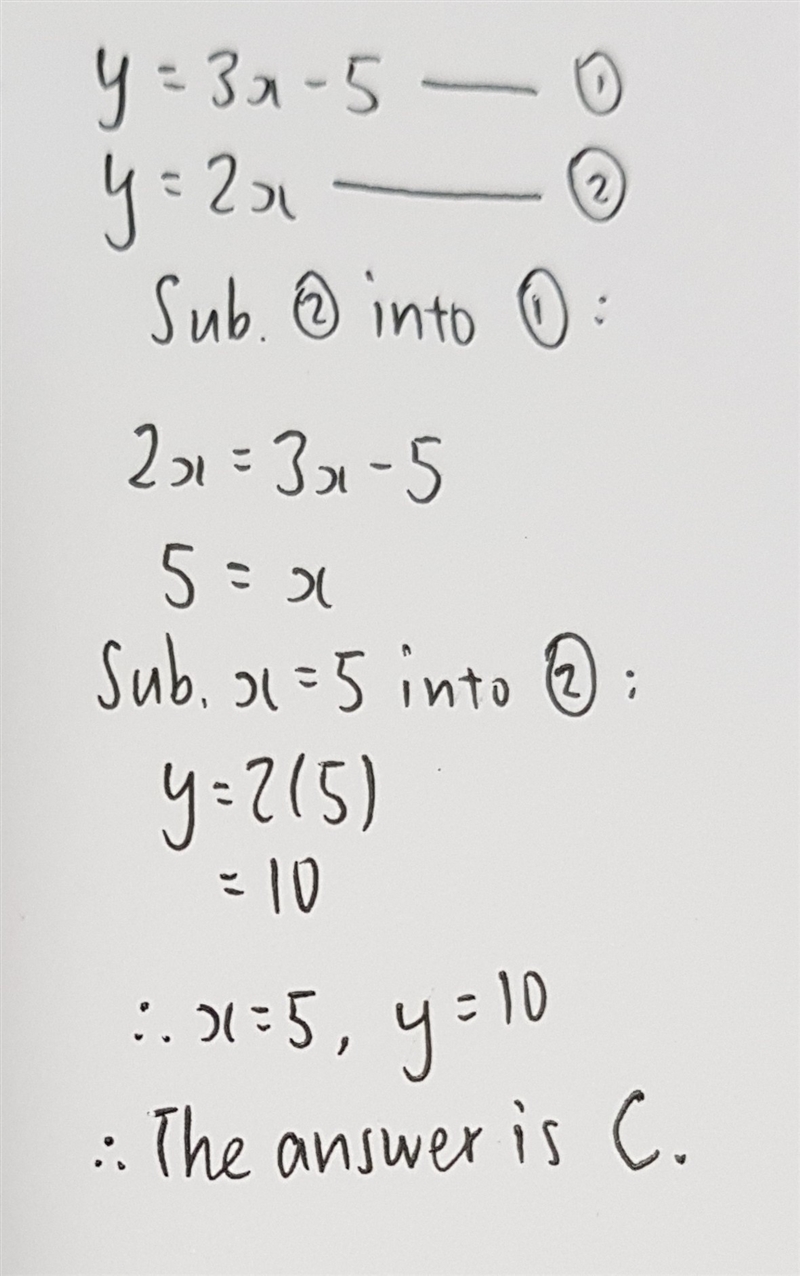 y = 3x - 5 — ①
y = 2x — ②
Sub. ② into ① :
2x = 3x - 5
5 = x
Sub. x = 5 into ② :
y = 2(5)
= 10
∴ x = 5, y = 10
∴ The answer is C.